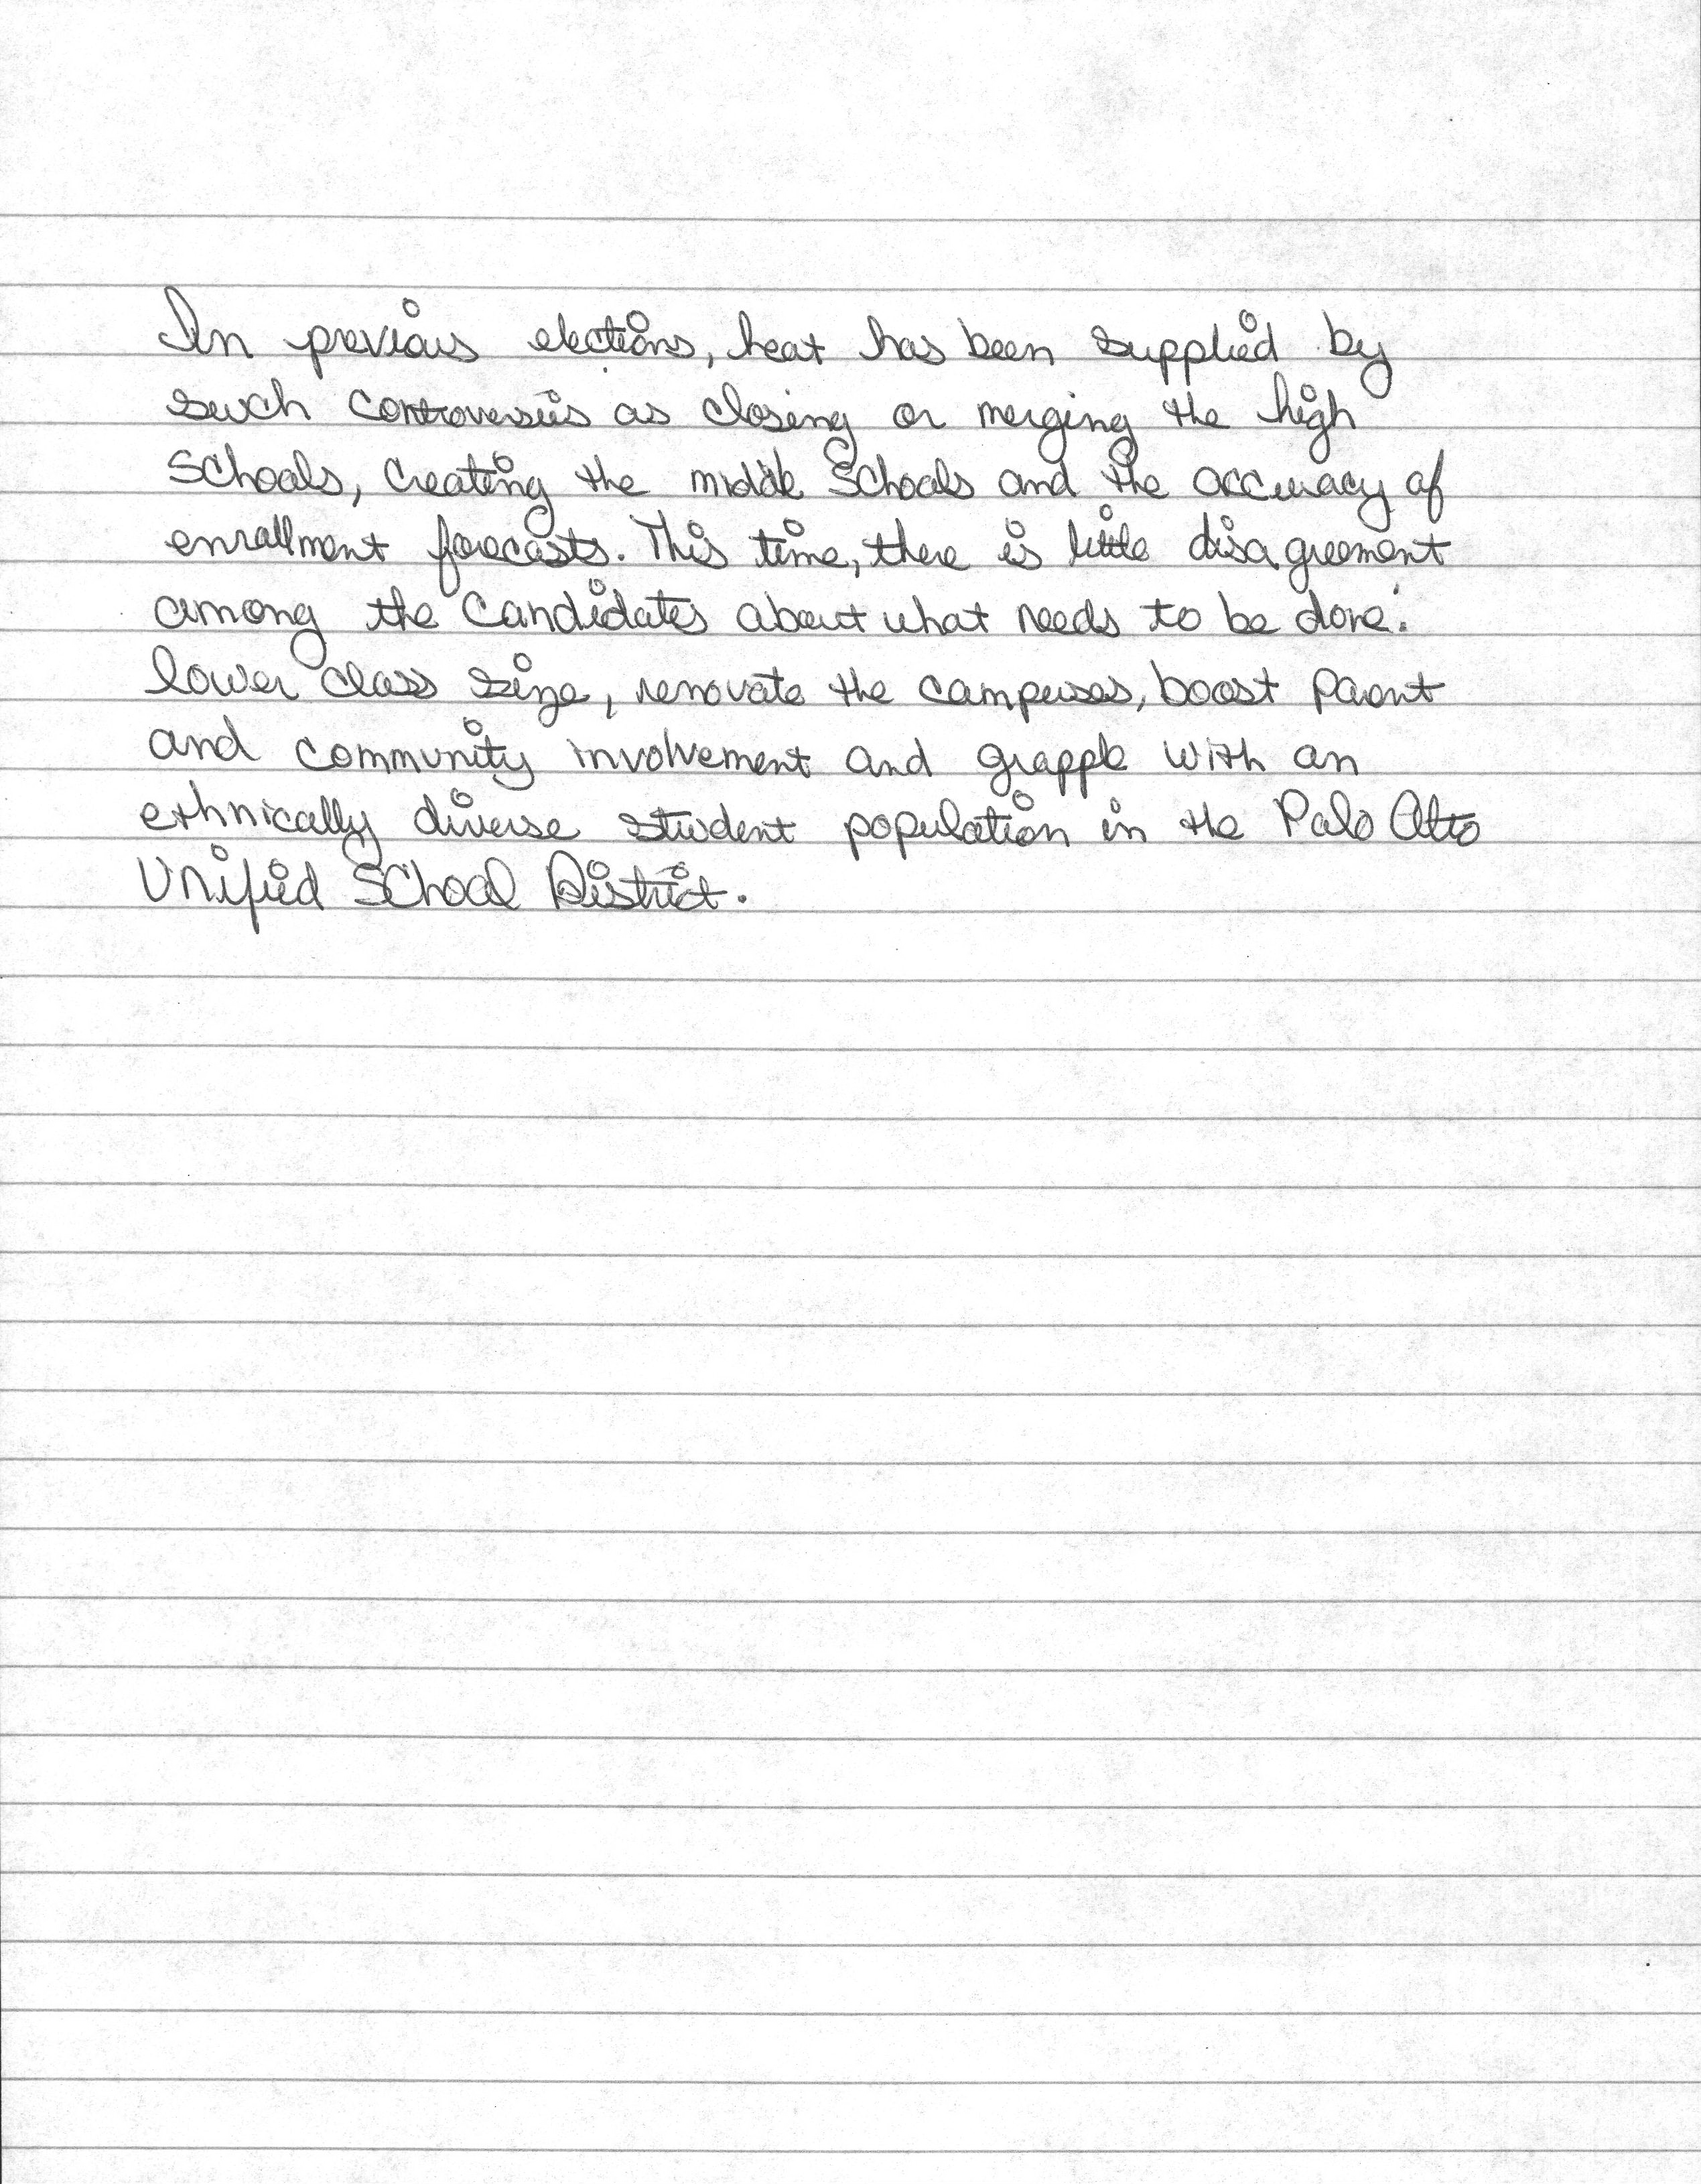 In previous elections, heat has been supplied by
such controversies as closing or merging the high
schools, creating the middle schools and the accuracy of
enrollment forecasts. This time, there is little disagreement
among the candidates about what needs to be done:
lower class size, renovate the campuses, boost parent
and community involvement and grapple with an
ethnically diverse student population in the Palo Alto
Unified School District.